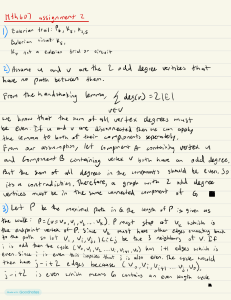 Mth607 assignment 2
1) Eulerian trail: P4, K2,
Eulerian circuit: K
K4 not a Eulerian trail or circuit
2) Assume u and v are the 2 odd degree vertices that
have no path between them.
From the handshaking lemma, ∑ deg(v) = 2|E|
v∈V
we know that the sum of all vertex degrees must
be even. If u and v are disconnected then we can apply
the lemma to both of their components separately.
From our assumption, let component A containing vertex u
and component B containing vertex v both have an odd degree,
But the sum of all degrees in the components should be even. So
its a contradiction. Therefore, a graph with 2 odd degree
vertices must be in the same connected component of G ■
3) Let P be the maximal path in G. the length of P is given as
the walk: P = (v0, v1, v2, ... vk). P must stop at vk which is
the endpoint vertex of P. Since v0 must have other edges reaching back
to the path so let v1, vi, vj be the 3 neighbors of v. If
i is odd then the cycle (v0, v1, ... v0) has i+1 edges which is
even since i is even this implies that j is also even. The cycle would
then have j-i+2 edges because (v0, vi, vi+1 ... vj, v0),
j-i+2 is even which means G contains an even length cycle